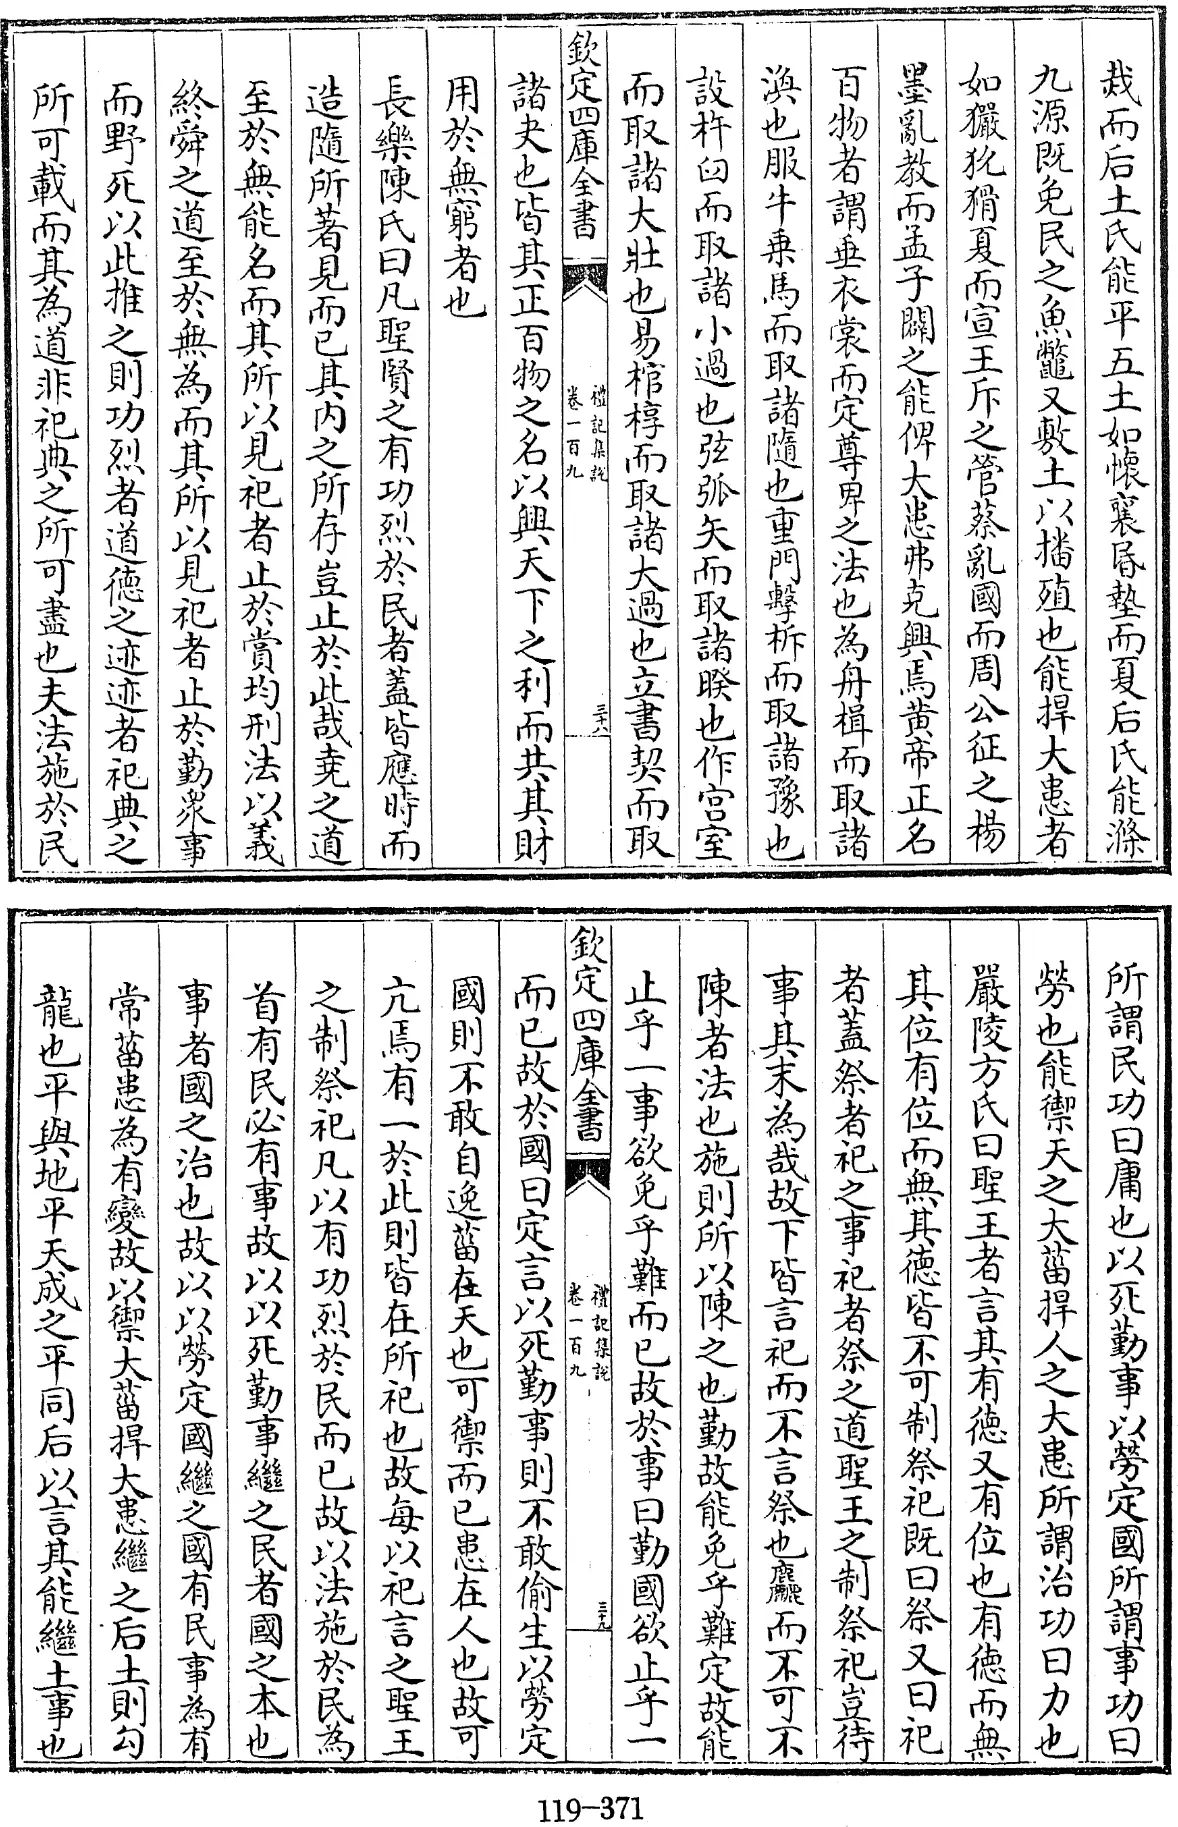 烖而后土氏能平五土如懷襄昏墊而夏后氏能滌
九源既免民之魚鼈又敷土以播殖也能捍大患者
如玁狁猾夏而宣王斥之管蔡亂國而周公征之楊
墨亂教而孟子闢之能俾大患弗克興焉黄帝正名
百物者謂垂衣裳而定尊卑之法也為舟楫而取諸
渙也服牛乗馬而取諸隨也重門擊柝而取諸豫也
設杵臼而取諸小過也弦弧矢而取諸暌也作宫室
而取諸大壯也易棺椁而取諸大過也立書契而取
欽定四庫全書
禮記集説
卷一百九
三十八
諸夬也皆其正百物之名以興天下之利而共其財
用於無窮者也
長樂陳氏曰凡聖賢之有功烈於民者蓋皆應時而
造隨所著見而已其内之所存豈止於此哉堯之道
至於無能名而其所以見祀者止於賞均刑法以義
終舜之道至於無為而其所以見祀者止於勤衆事
而野死以此推之則功烈者道徳之迹迹者祀典之
所可載而其為道非祀典之所可盡也夫法施於民
所謂民功曰庸也以死勤事以勞定國所謂事功曰
勞也能禦天之大菑捍人之大患所謂治功曰力也
嚴陵方氏曰聖王者言其有徳又有位也有徳而無
其位有位而無其徳皆不可制祭祀既曰祭又曰祀
者蓋祭者祀之事祀者祭之道聖王之制祭祀豈待
事其末為哉故下皆言祀而不言祭也麤而不可不
陳者法也施則所以陳之也勤故能免乎難定故能
止乎一事欲免乎難而已故於事曰勤國欲止乎一
欽定四庫全書
禮記集説
卷一百九
三十九
而已故於國曰定言以死勤事則不敢偷生以勞定
國則不敢自逸菑在天也可禦而已患在人也故可
亢焉有一於此則皆在所祀也故每以祀言之聖王
之制祭祀凡以有功烈於民而已故以法施於民為
首有民必有事故以以死勤事繼之民者國之本也
事者國之治也故以以勞定國繼之國有民事為有
常菑患為有變故以禦大菑捍大患繼之后土則勾
龍也平與地平天成之平同后以言其能繼土事也
119-371